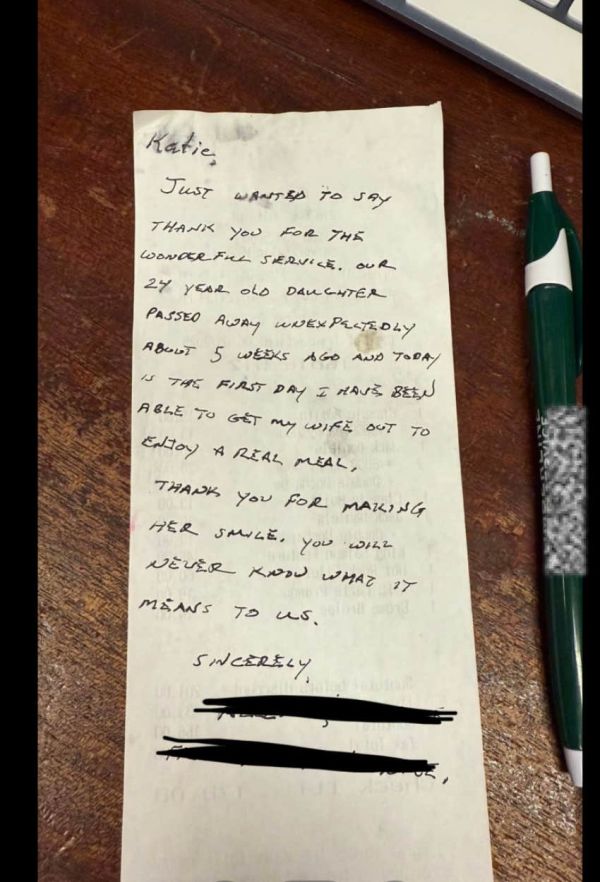 Katie,
JUST WANTED TO SAY
THANK YOU FOR THE
WONDERFULL SERVICE. OUR
24 YEAR OLD DAUGHTER
PASSED AWAY UNEXPECTEDLY
ABOUT 5 WEEKS AGO AND TODAY
IS THE FIRST DAY I HAVE BEEN
ABLE TO GET MY WIFE OUT TO
ENJOY A REAL MEAL.
THANK YOU FOR MAKING
HER SMILE. YOU WILL
NEVER KNOW WHAT IT
MEANS TO US.
SINCERELY,